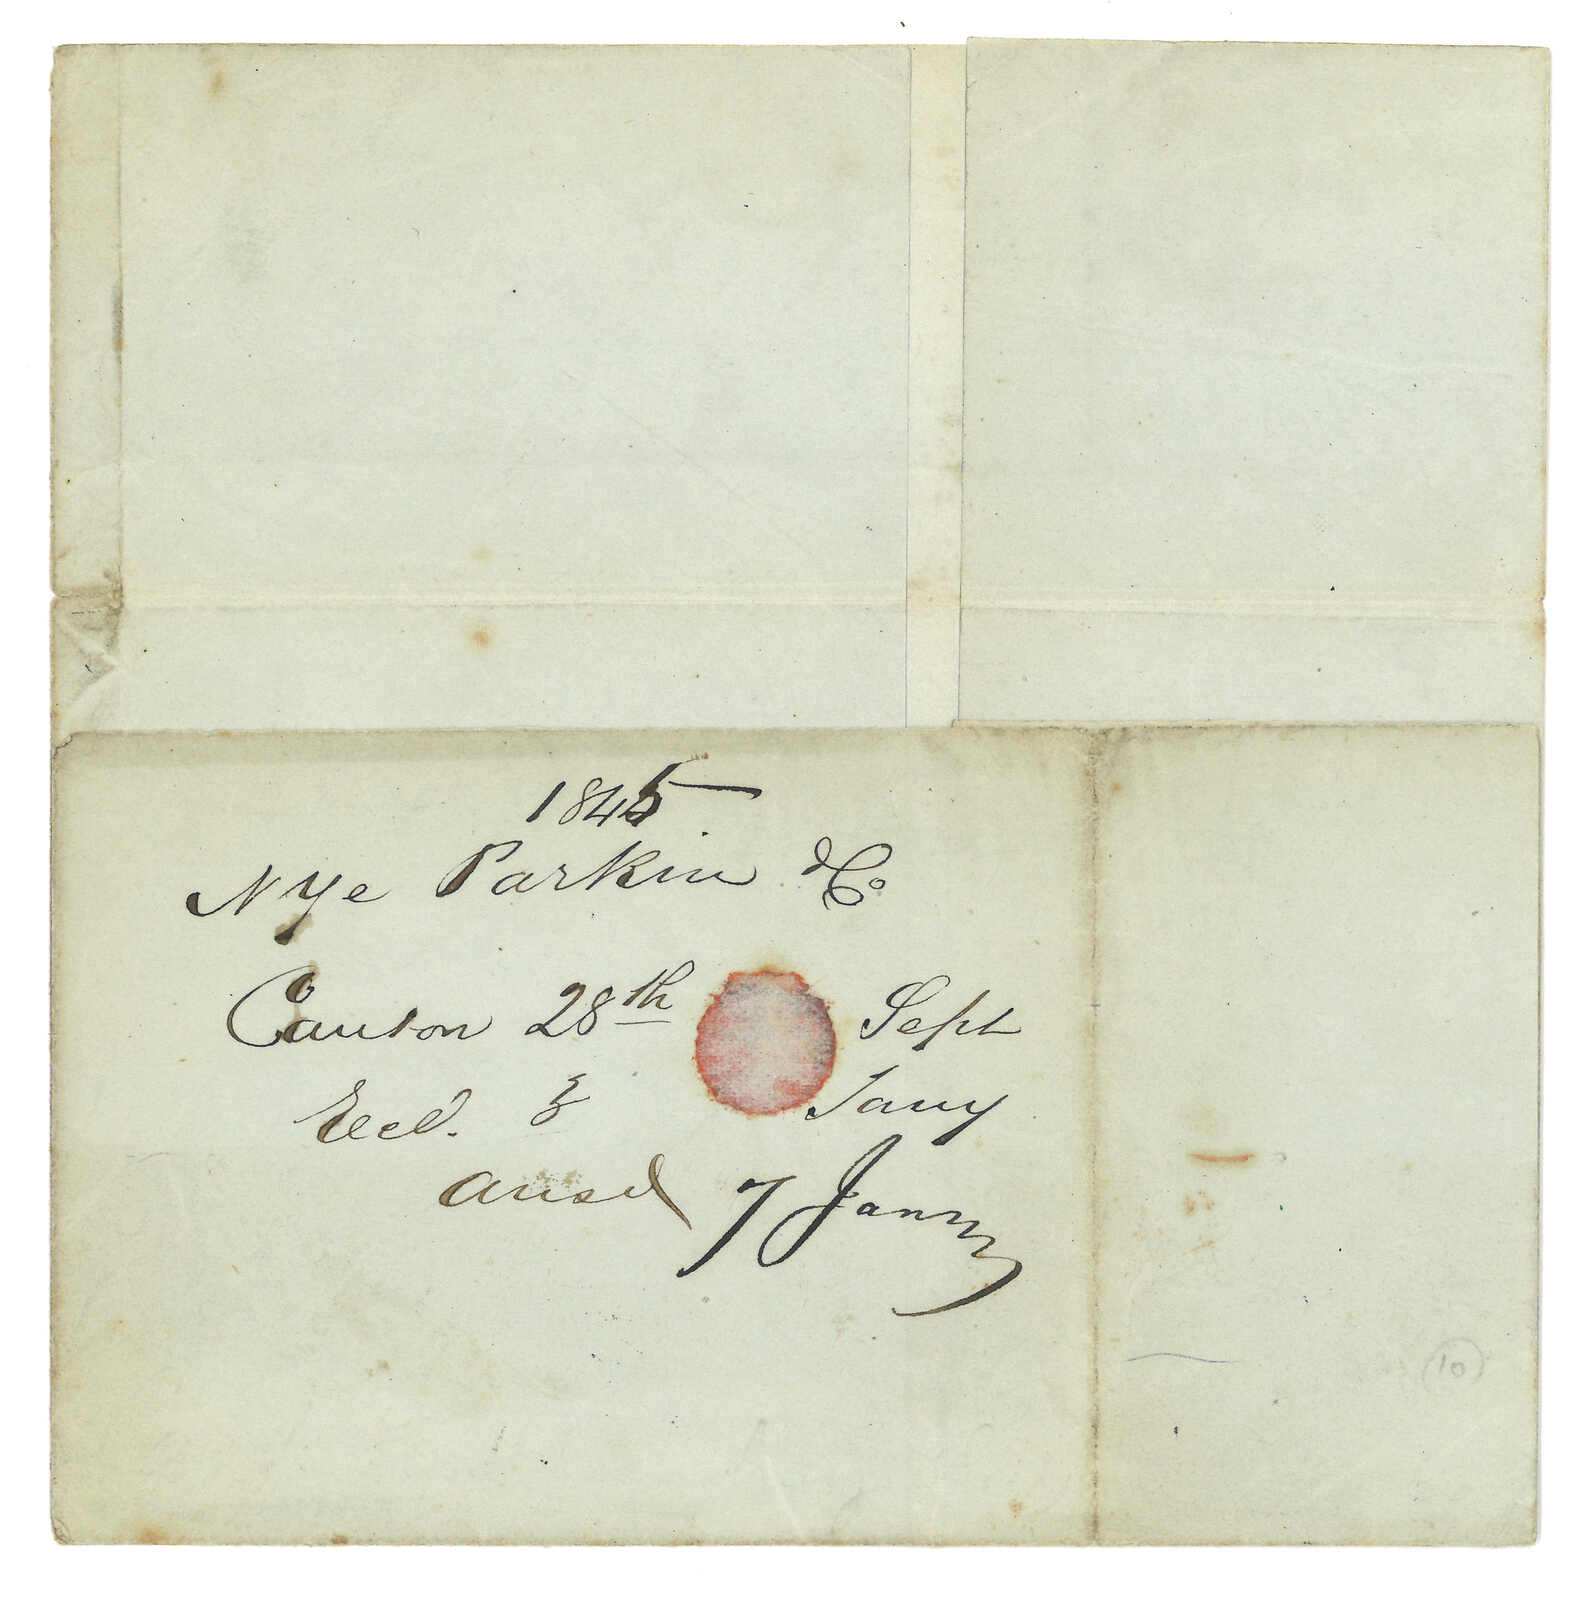 1845
Nye Parkin & Co
Canton 28th Sept
Recd. 3 Jany
Ansd 7 Janry
10